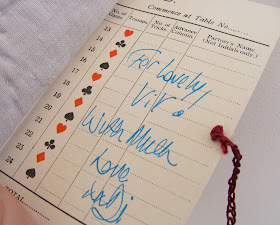 Commence at Table No.
No. of Game
Trumps
No. of Tricks
Advance Column
Partner's Name
(Not Initials only)
13
14
15
16
17
18
19
20
21
22
23
24
TOTAL
For Lovely
Viv.
With Much
Love